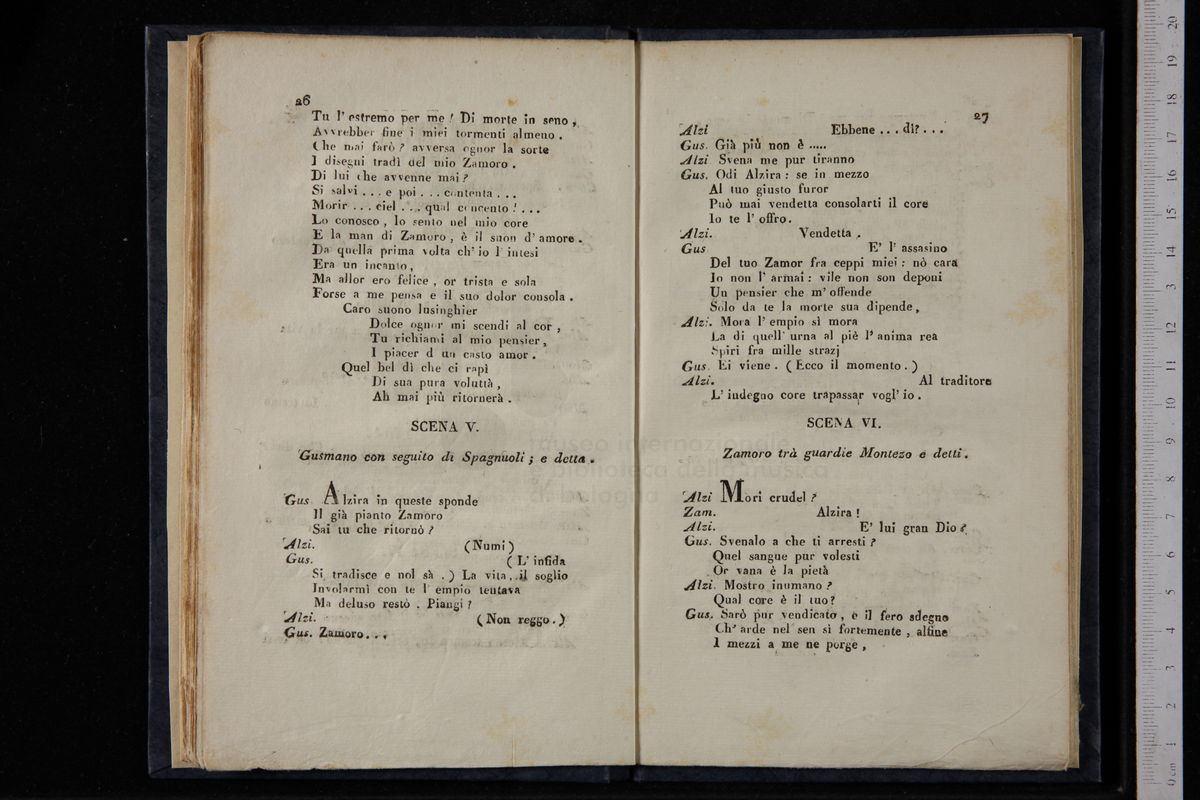 26
Tu l' estremo per me ! Di morte in seno ,
Avvrebber fine i miei tormenti almeno .
Che mai farò ? avversa ognor la sorte
I disegni tradì del mio Zamoro .
Di lui che avvenne mai ?
Si salvi . . . e poi . . . contenta . . .
Morir . . . ciel . . . qual concento ! . . .
Lo conosco , lo sento nel mio core
E la man di Zamoro , è il suon d' amore .
Da quella prima volta ch' io l' intesi
Era un incanto ,
Ma allor ero felice , or trista e sola
Forse a me pensa e il suo dolor consola .
Caro suono lusinghier
Dolce ognor mi scendi al cor ,
Tu richiami al mio pensier ,
I piacer d un casto amor .
Quel bel dì che ci rapì
Di sua pura voluttà ,
Ah mai più ritornerà .
SCENA V.
Gusmano con seguito di Spagnuoli ; e detta .
Gus. Alzira in queste sponde
Il già pianto Zamoro
Sai tu che ritornò ?
Alzi. (Numi)
Gus. ( L' infida
Si tradisce e nol sà . ) La vita, il soglio
Involarmi con te l' empio tentava
Ma deluso restò . Piangi ?
Alzi. (Non reggo.)
Gus. Zamoro. . .
27
Alzi Ebbene . . . di? . . .
Gus. Già più non è .....
Alzi Svena me pur tiranno
Gus. Odi Alzira : se in mezzo
Al tuo giusto furor
Può mai vendetta consolarti il core
Io te l' offro.
Alzi. Vendetta .
Gus E' l' assasino
Del tuo Zamor fra ceppi miei : nò cara
Io non l' armai : vile non son deponi
Un pensier che m' offende
Solo da te la morte sua dipende,
Alzi. Mora l' empio sì mora
La di quell' urna al piè l' anima rea
Spiri fra mille strazj
Gus. Ei viene . ( Ecco il momento . )
Alzi. Al traditore
L' indegno core trapassar vogl' io .
SCENA VI.
Zamoro trà guardie Montezo e detti .
Alzi Mori crudel ?
Zam. Alzira !
Alzi. E' lui gran Dio ?
Gus. Svenalo a che ti arresti ?
Quel sangue pur volesti
Or vana è la pietà
Alzi. Mostro inumano ?
Qual core è il tuo ?
Gus. Sarò pur vendicato , e il fero sdegno
Ch' arde nel sen sì fortemente , alfine
I mezzi a me ne porge ,
museo internazionale
e biblioteca della musica
di bologna